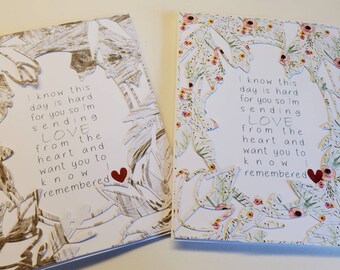 I know this
day is hard
for you so I'm
sending
LOVE
from the
heart and
want you to
know
remembered
I know this
day is hard
for you so I'm
sending
LOVE
from the
heart and
want you to
know
remembered